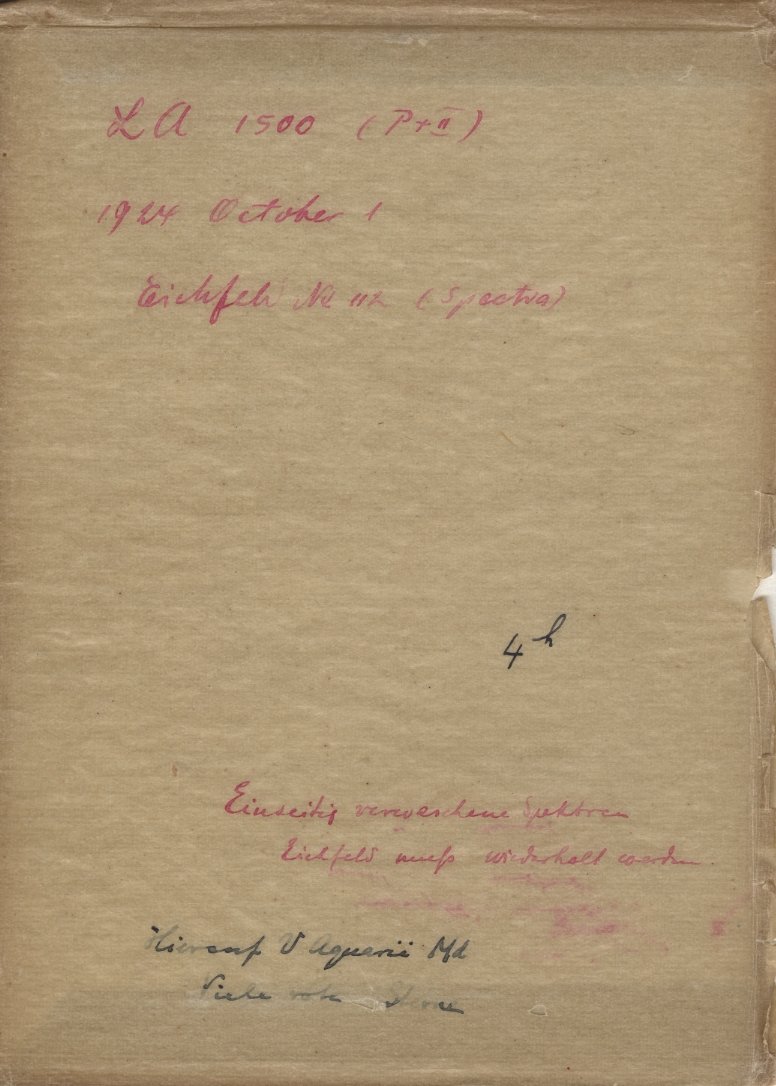 LA 1500 (Pr II)
1924 October 1
Eichfeld Nr 112 (Spectra)
4h
Einseitig verwaschene Spektren
Eichfeld muß wiederholt werden.
Hierauf V Aquarii Md
Viele rote Sterne